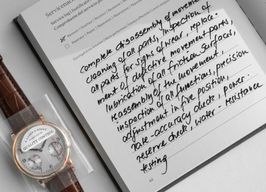 Complete disassembly of movement,
cleaning of all parts, inspection of
all parts for signs of wear, replace-
ment of defective movement parts,
lubrication of all friction surfaces,
reassembly of the movement,
inspection of all functions, precision
adjustment in five positions,
rate accuracy check, power-
reserve check, water-resistance
testing